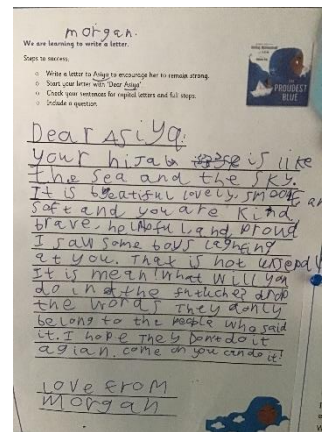 morgan.
We are learning to write a letter.
Steps to success.
Write a letter to Asiya to encourage her to remain strong.
Start your letter with 'Dear Asiya'
Check your sentences for capital letters and full stops.
Include a question.
THE
PROUDEST
BLUE
Dear Asiya
your hijab is like
the sea and the sky.
It is beatiful lovely, smooth an
soft and you are kind
brave, helpful, and proud
I saw some boys laghing
at you. That is not
It is mean! What will you
do in the drop
the words They donly
belong to the people who said
it. I hope they Dont do it
agian. come on you can do it!
Love from
Morgan